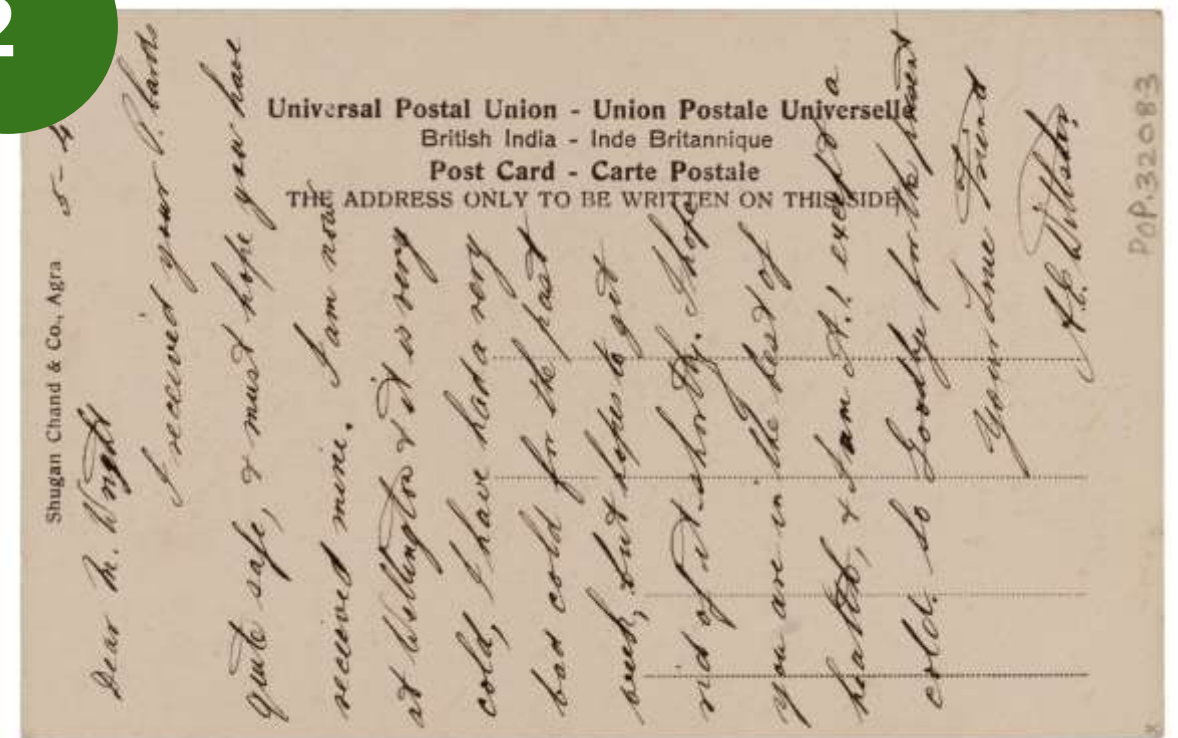 2
Universal Postal Union - Union Postale Universelle
British India - Inde Britannique
Post Card - Carte Postale
THE ADDRESS ONLY TO BE WRITTEN ON THIS SIDE
Shugan Chand & Co., Agra
5-4
Dear M. Wright
I received your P. Cards
quite safe, & must hope you have
received mine. I am now
at Wellington & it is very
cold, I have had a very
bad cold for the past
week, but hopes to get
rid of it shortly. I hope
you are in the best of
health, & I am A.1. except a
cold. So Goodby for the present
Your True Friend
PoP.32083